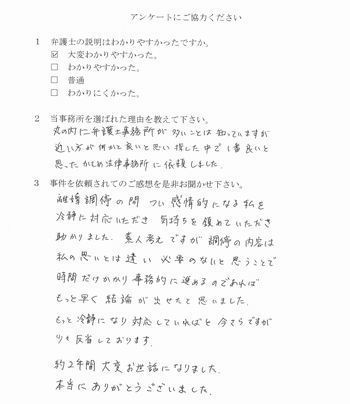 アンケートにご協力ください
1 弁護士の説明はわかりやすかったですか。
☑ 大変わかりやすかった。
☐ わかりやすかった。
☐ 普通
☐ わかりにくかった。
2 当事務所を選ばれた理由を教えて下さい。
丸の内に弁護士事務所が多いことは知っていますが
近い方が何かと良いと思い探した中で1番良いと
思ったかじめ法律事務所に依頼しました。
3 事件を依頼されてのご感想を是非お聞かせ下さい。
離婚調停の間 つい感情的になる私を
冷静に対応いただき 気持ちを鎮めていただき
助かりました。素人考えですが 調停の内容は
私の思いとは違い 必要のないと思うことで
時間だけかかり 事務的に進めるのであれば
もっと早く 結論が出せたと思いました。
もっと冷静になり対応していればと 今さらですが
少々反省しております。
約2年間 大変お世話になりました。
本当にありがとうございました。